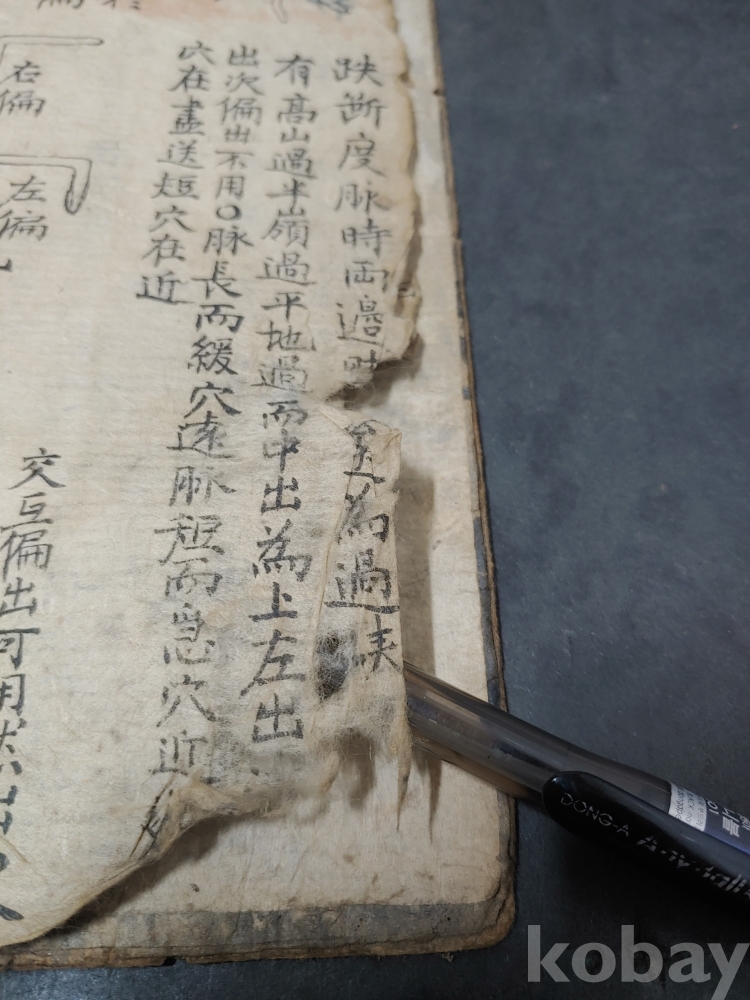 跌斷度脉時両邊為過
有髙山過半嶺過平地過而中出為上左出
出次偏出不用○脉長而緩穴遠脉短而急穴近
穴在盡送短穴在近
右偏
左偏
交互偏出可用然出
DONG-A
kobay